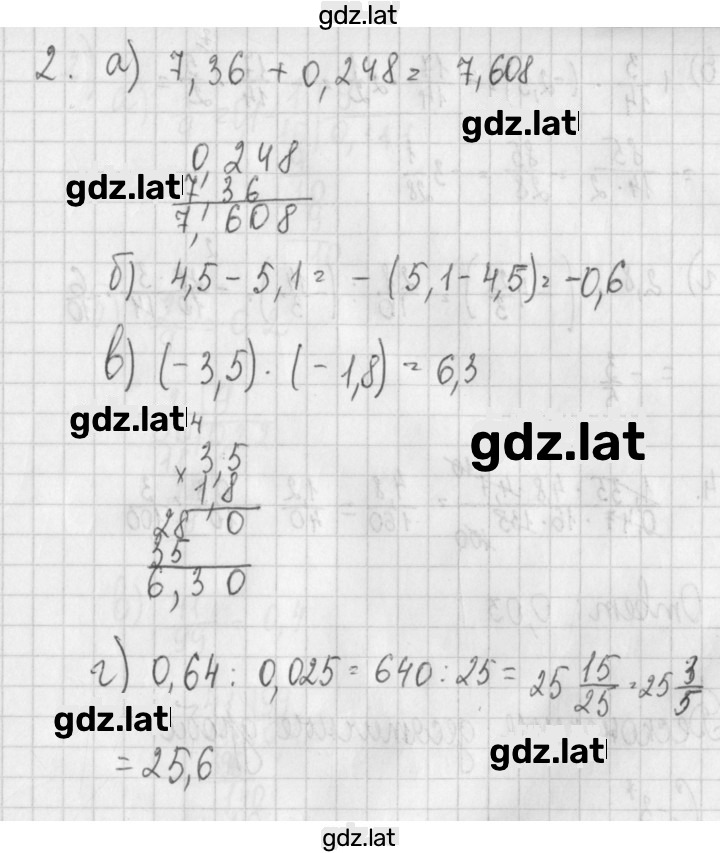 gdz.lat
2. а) 7,36 + 0,248 = 7,608
gdz.lat
0,248
gdz.lat
7,36
7,608
б) 4,5 - 5,1 = - (5,1 - 4,5) = -0,6
в) (-3,5) · (-1,8) = 6,3
gdz.lat
4
gdz.lat
3,5
× 1,8
28 0
35
6,30
г) 0,64 : 0,025 = 640 : 25 = 25 15/25 = 25 3/5
gdz.lat
gdz.lat
= 25,6
gdz.lat